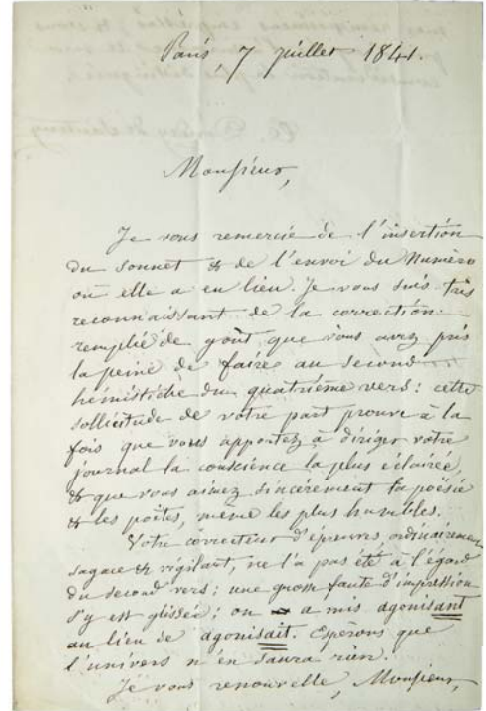 Paris, 7 juillet 1841.
Monsieur,
Je vous remercie de l'insertion
du sonnet & de l'envoi du Numéro
où elle a eu lieu. Je vous suis très
reconnaissant de la correction
remplie de goût que vous avez pris
la peine de faire au second
hémistiche du quatrième vers: cette
sollicitude de votre part prouve à la
fois que vous apportez à diriger votre
journal la conscience la plus éclairée,
& que vous aimez sincèrement la poësie
& les poëtes, même les plus humbles.
Votre correcteur d'épreuves ordinairement
sagace & vigilant, ne l'a pas été à l'égard
du second vers; une grosse faute d'impression
s'y est glissée; on a mis agonisant
au lieu de agonisait. Espérons que
l'univers n'en saura rien.
Je vous renouvelle, Monsieur,